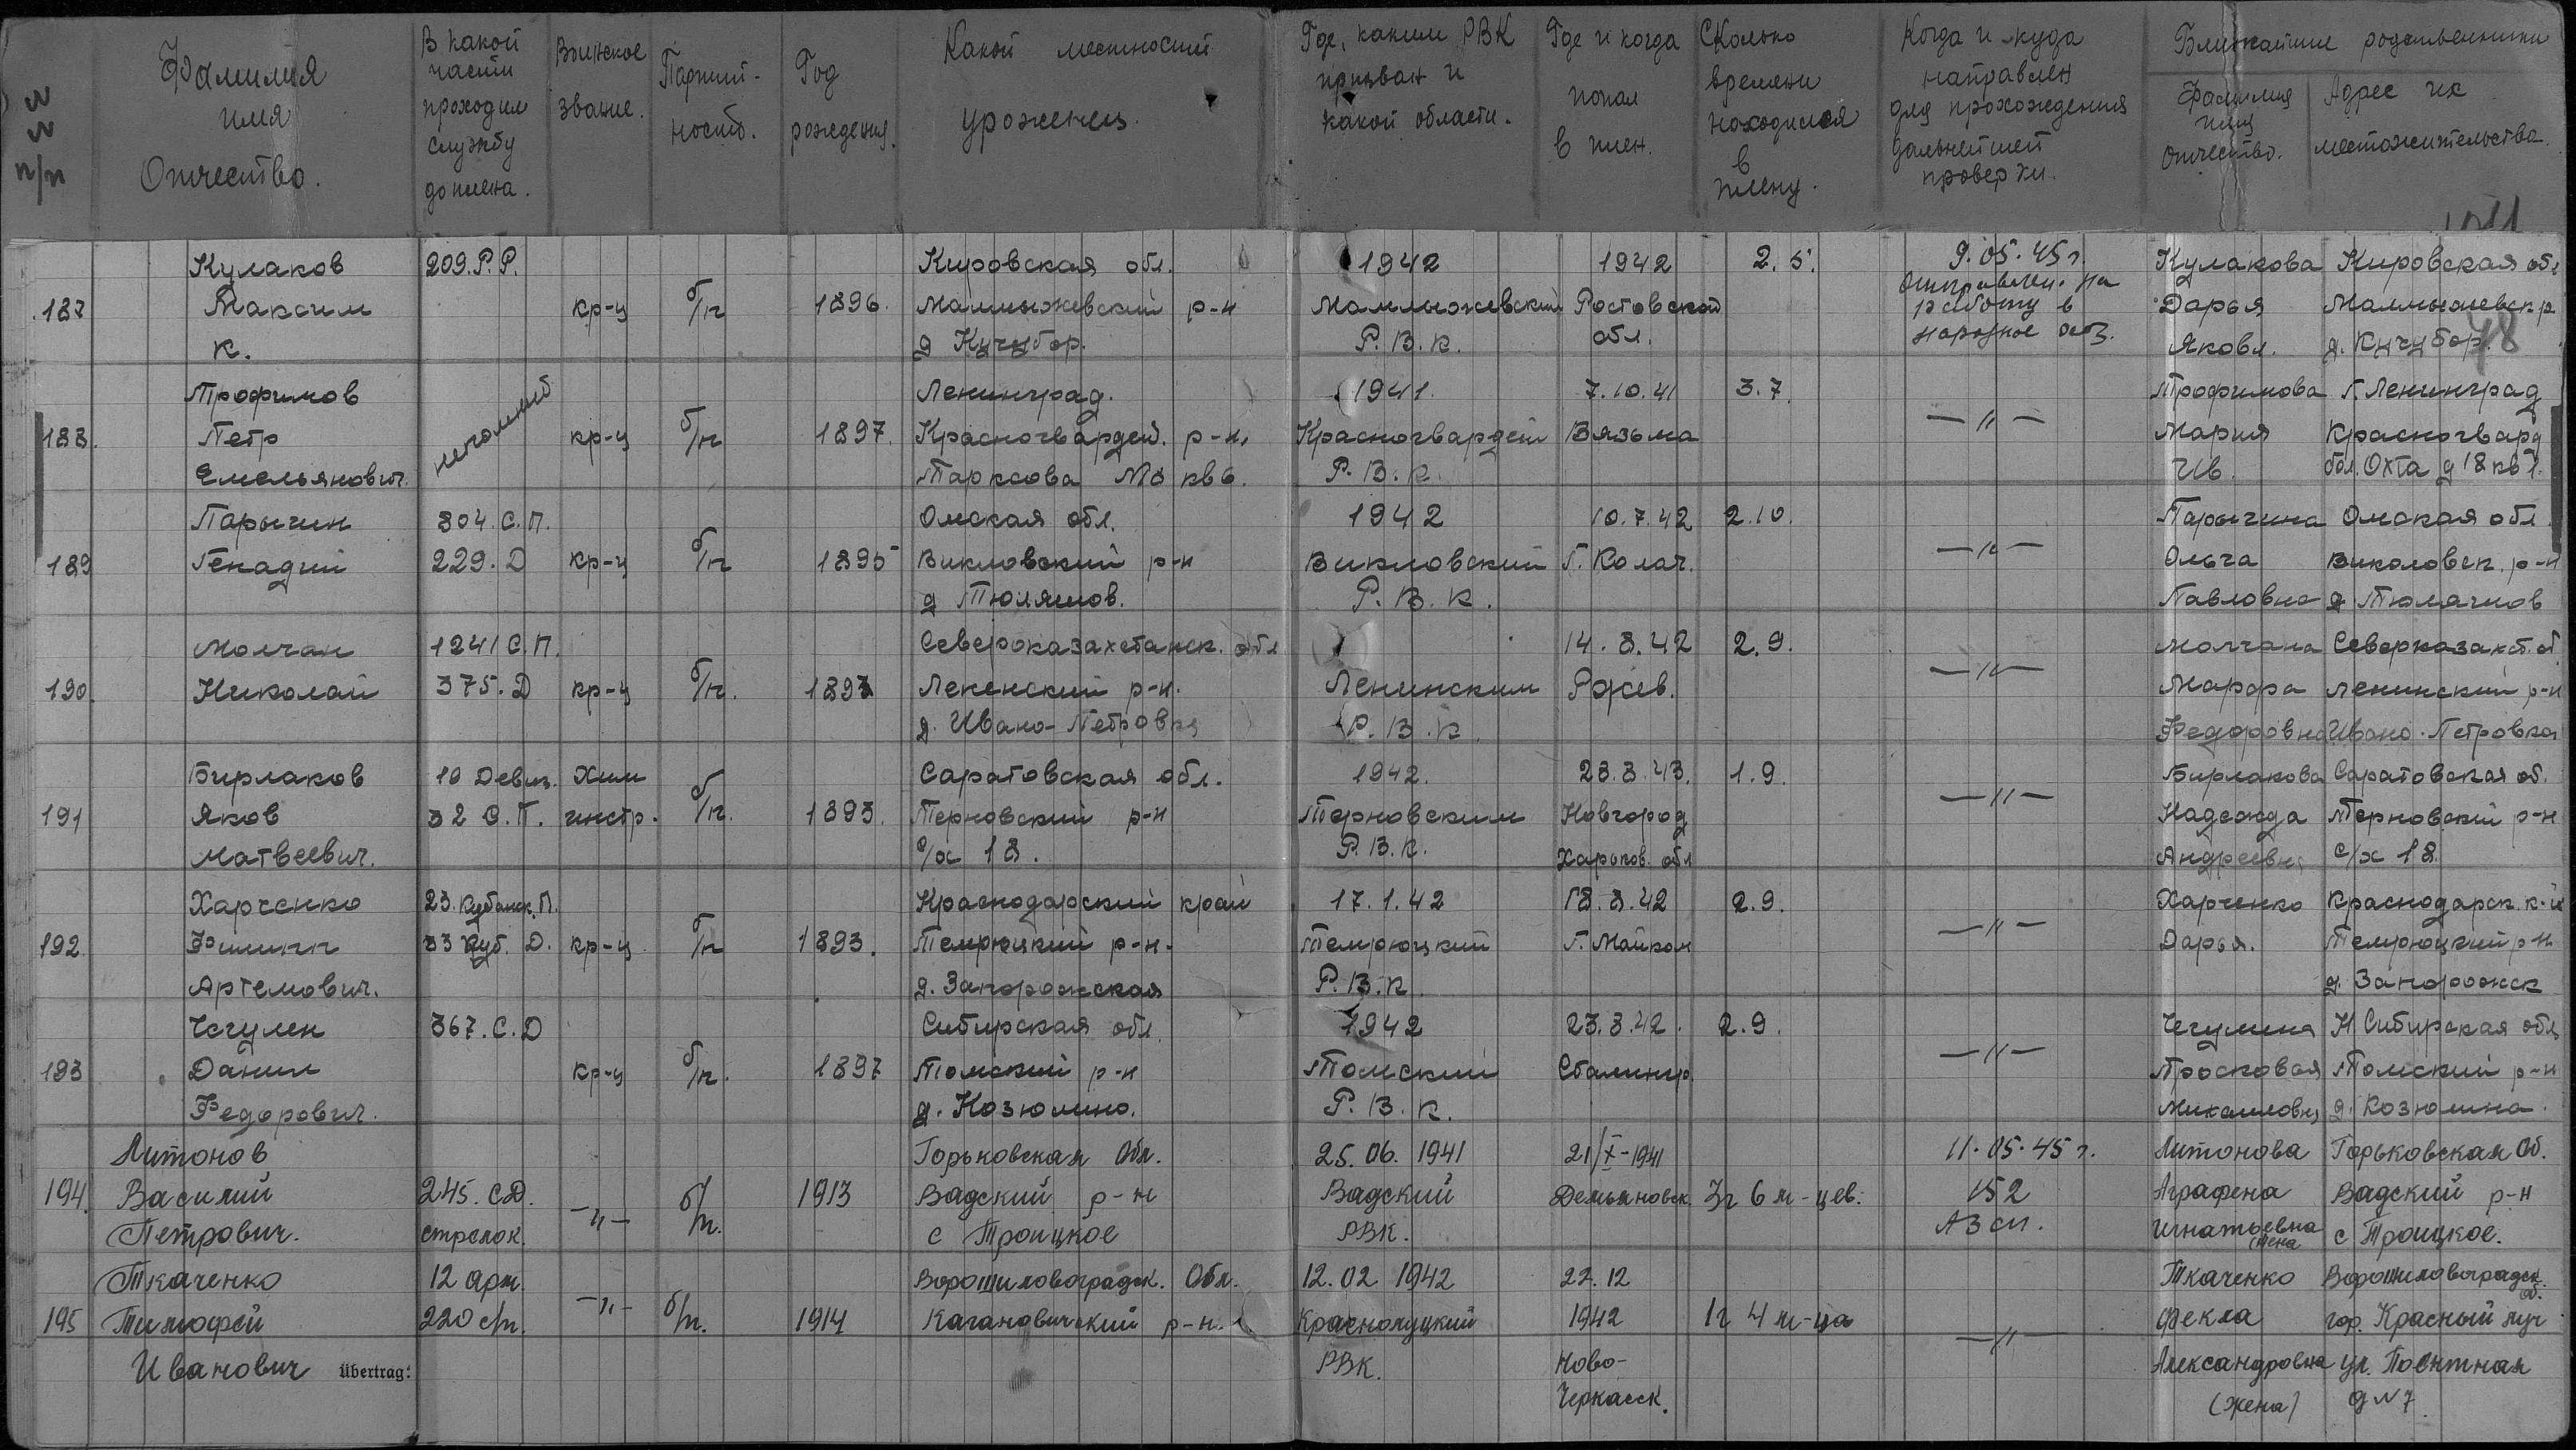 № № п/п
Фамилия имя Отчество.
В какой части проходил службу до плена.
Воинское звание.
Партий-ность.
Год рождения.
Какой местности уроженец.
Где, каким РВК призван и какой области.
Где и когда попал в плен.
Сколько времени находился в плену.
Когда и куда направлен для прохождения дальнейшей проверки.
Ближайшие родственники
Фамилия имя отчество.
Адрес их местожительства.
Кулаков 209.Р.Р. Кировская обл. 1942 1942 2.5. 9.05.45г. Кулакова Кировская обл
187 Максим кр-ц б/п 1896. Малмыжевский р-н Малмыжевский Ростовской отправлен. на работу в Дарья Малмыжевск р
К. д Кучубор. Р.В.К. обл. народное хоз. Яковл. д. Кучубор. 48
Трофимов Ленинград. 1941. 7.10.41 3.7. Трофимова Г. Ленинград
188. Петр непомнит кр-ц б/п 1897. Красногвардей. р-н, Красногвардей Вязьма —〃— Мария Красногвард
Емельянович. Тарксова №8 кв 6. Р.В.К. Ив. обл. Охта д 18 кв 1.
Парыгин 804. С.П. Омская обл. 1942 10.7.42 2.10. Парыгина Омская обл
189 Генадий 229. Д кр-ц б/п 1895 Викловский р-н Викловский Г. Колач. —〃— Ольга Виколовск. р-н
д Тюляшов. Р.В.К. Павловна д Тюляшов
Молчан 1241 С.П. Североказахстанск. обл 14.8.42 2.9. Молчана Северказакст. об
190. Николай 375. Д кр-ц б/п. 1893 Лекенский р-н. Ленинским Ржев. —〃— Марфа Ленинский р-н
д. Ивано-Петровка Р.В.К. Федоровна Ивано-Петровка
Бирлаков 10 Девиз. Хим Саратовская обл. 1942. 23.8.43. 1.9. Бирлакова Саратовская об.
191 Яков 32 С.П. инстр. б/п. 1893. Терновский р-н Терновским Новгород —〃— Надежда Терновский р-н
Матвеевич. с/х 18. Р.В.К. Харьков. обл Андреевна с/х 18.
Харченко 23. Кубанск.П. Краснодарский край 17.1.42 18.8.42 2.9. Харченко Краснодарск. к-й
192. Филипп 33 Куб. Д. кр-ц б/п 1893. Темрюцкий р-н. Темрюцкий г. Майкоп —〃— Дарья. Темрюцкий р-н
Артемович. д. Запорожская Р.В.К. д. Запорожск
Чегулен 367. С.Д Сибирская обл. 1942 23.8.42. 2.9. Чегулина Н Сибирская обл
193 Данил кр-ц б/п. 1897 Томский р-н Томский Сталингр. —〃— Просковья Томский р-н
Федорович. д. Козюлино. Р.В.К. Михаиловна д. Козюлина.
Литонов Горьковская Обл. 25.06. 1941 21/X-1941 11.05.45г. Литонова Горьковская Об.
194. Василий 245. СД. —〃— б/п. 1913 Вадский р-н Вадский Демьяновск. 3г 6 м-цев. 152 Аграфена Вадский р-н
Петрович. стрелок. с Троицкое РВК. АЗсп. Игнатьевна (жена с Троицкое.
Ткаченко 12 арт. Ворошиловоградск. Обл. 12.02 1942 22.12 Ткаченко Ворошиловоградск. об.
195 Тимофей 220 с/п. —〃— б/п. 1914 Кагановичский р-н. Краснолуцкий 1942 1г 4 м-ца —〃— Фекла гор. Красный луч
Иванович Übertrag: РВК. Ново- Александровна ул. Поситная
Черкасск. (жена) д №7